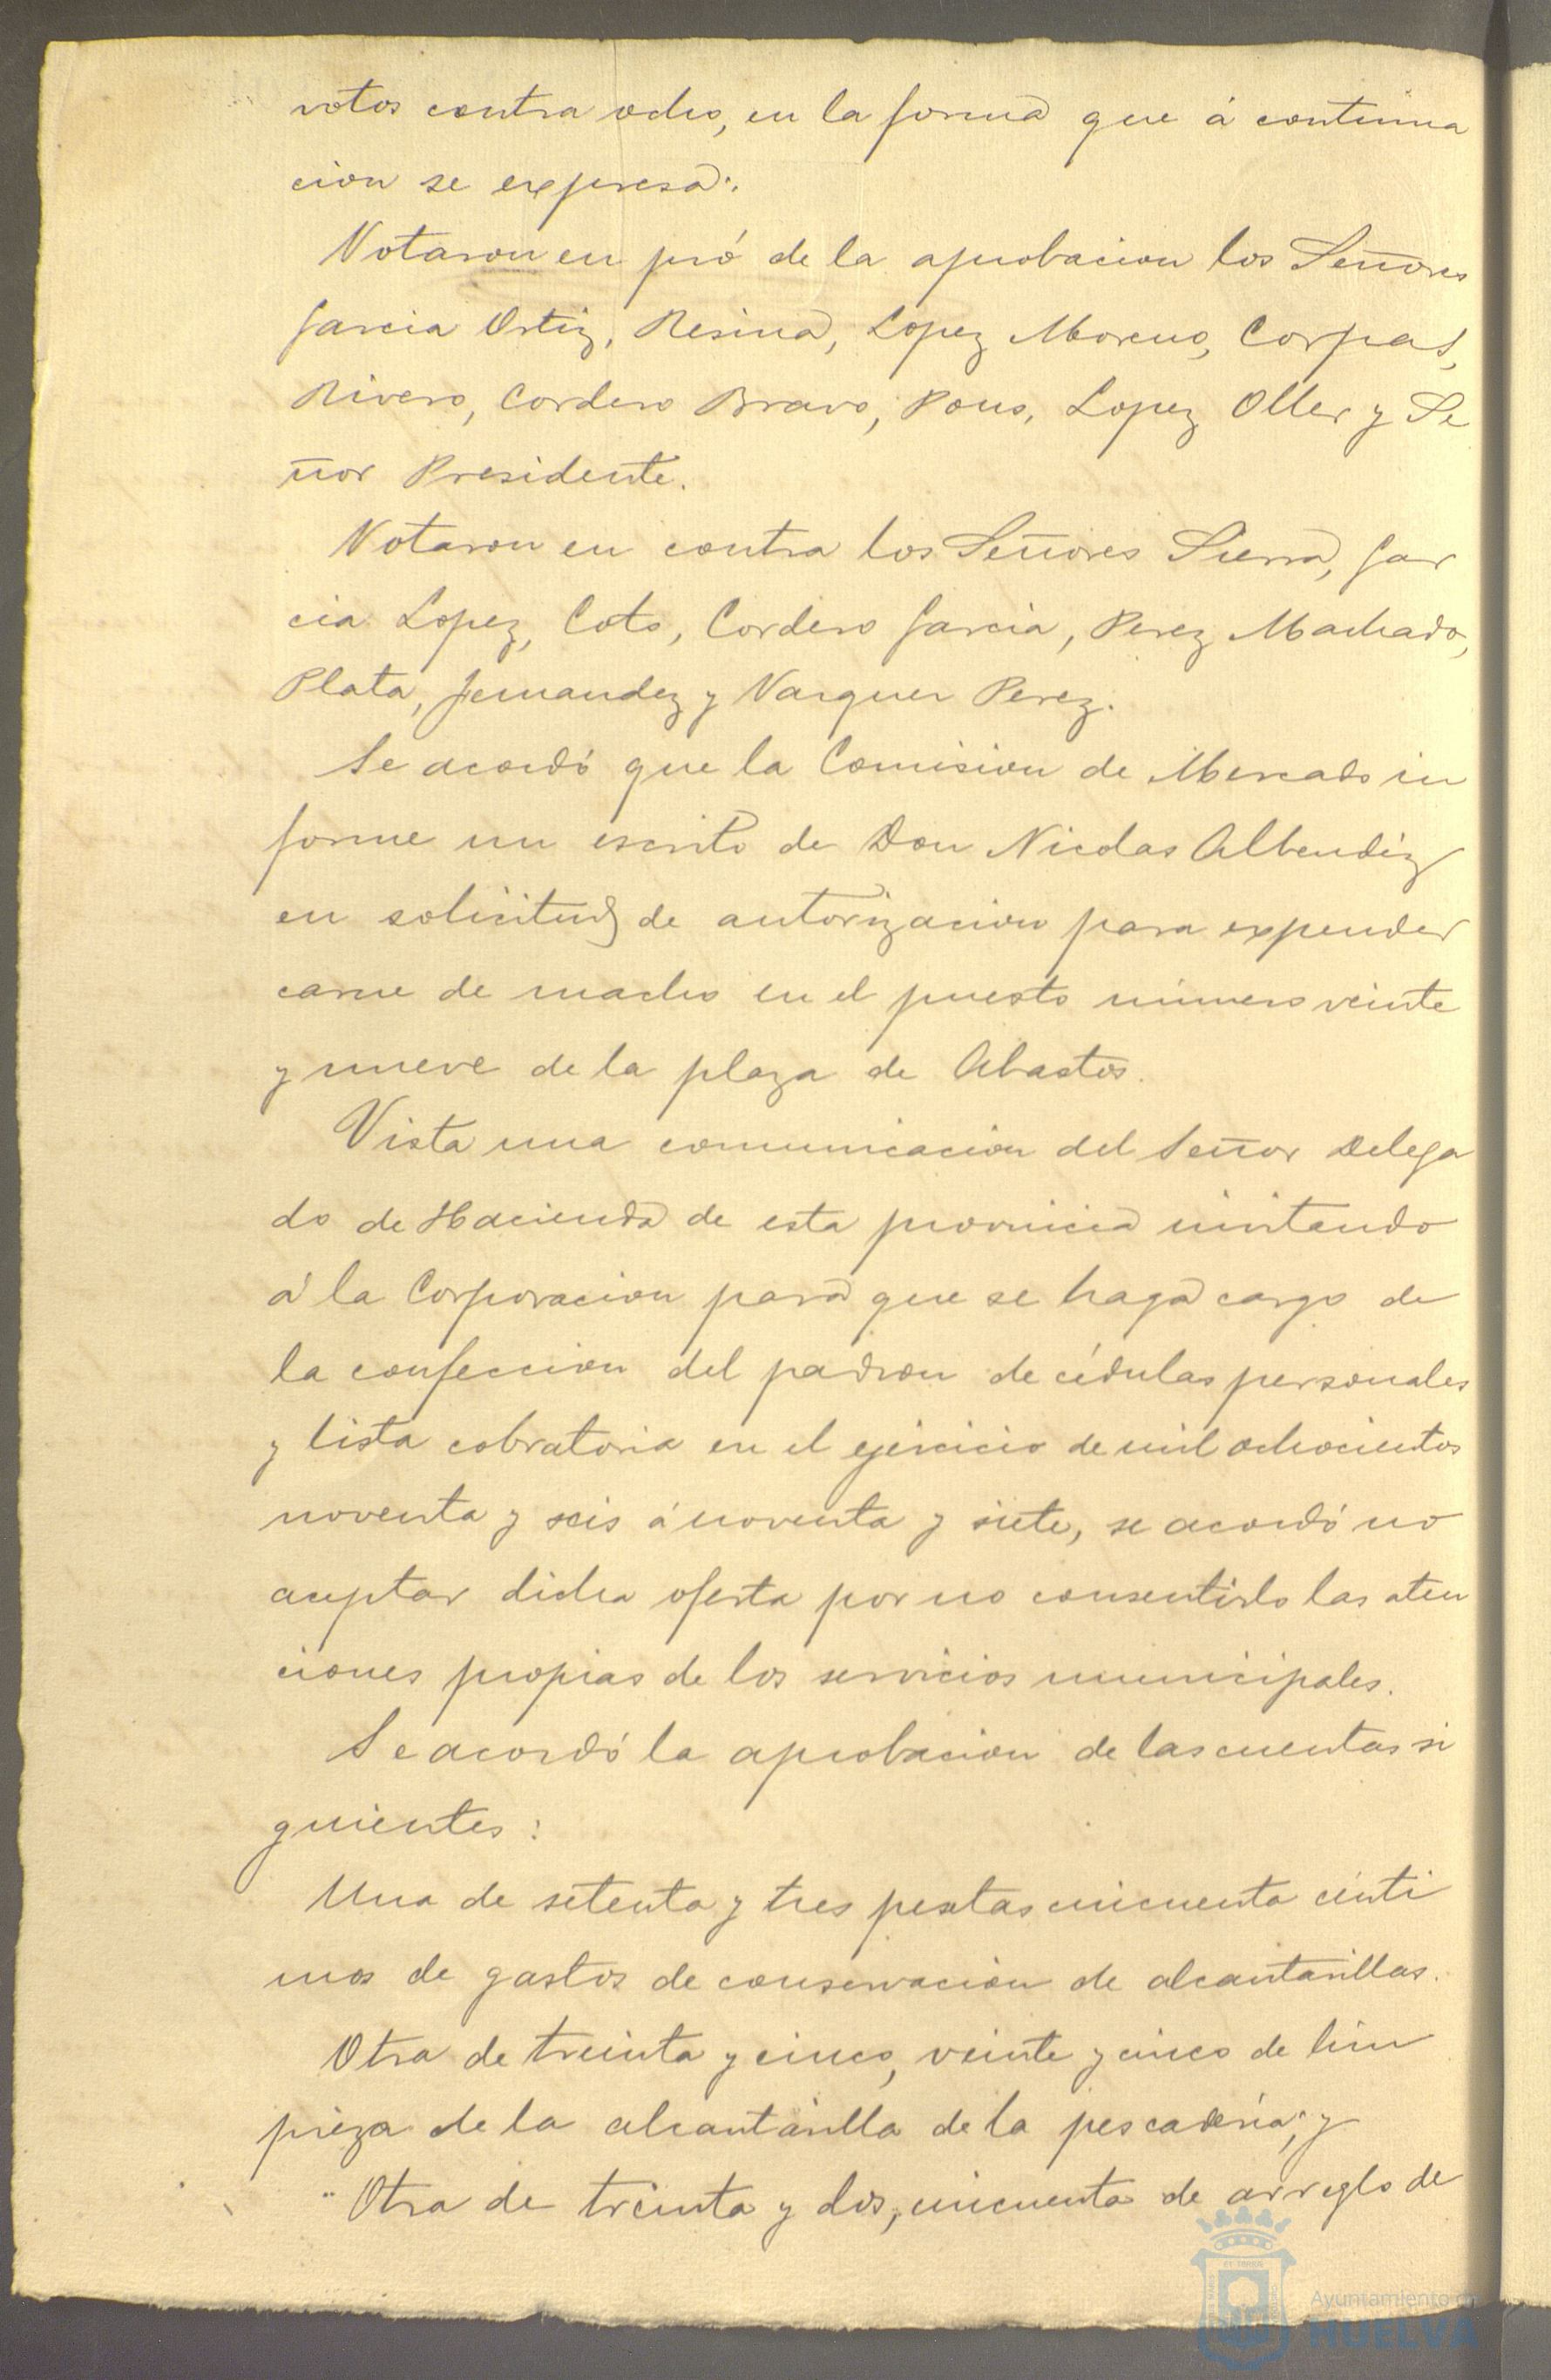 votos contra ocho, en la forma que á continua
cion se expresa:
Votaron en pró de la aprobacion los Señores
Garcia Ortiz, Resina, Lopez Moreno, Corpas,
Rivero, Cordero Bravo, Pons, Lopez Oller y Se
ñor Presidente.
Votaron en contra los Señores Sierra, Gar
cia Lopez, Coto, Cordero Garcia, Perez Machado,
Plata, Fernandez y Vazquez Perez.
Se acordó que la Comision de Mercado in
forme un escrito de Don Nicolas Albendiz
en solicitud de autorizacion para expender
carne de macho en el puesto número veinte
y nueve de la plaza de Abastos.
Vista una comunicacion del Señor Delega
do de Hacienda de esta provincia invitando
á la Corporacion para que se haga cargo de
la confeccion del padron de cédulas personales
y lista cobratoria en el ejercicio de mil ochocientos
noventa y seis á noventa y siete, se acordó no
aceptar dicha oferta por no consentirlo las aten
ciones propias de los servicios municipales.
Se acordó la aprobacion de las cuentas si
guientes:
Una de setenta y tres pesetas cincuenta cénti
mos de gastos de conservacion de alcantarillas.
Otra de treinta y cinco, veinte y cinco de lim
pieza de la alcantarilla de la pescaderia; y
Otra de treinta y dos, cincuenta de arreglo de
Ayuntamiento de
HUELVA